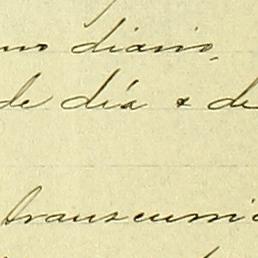 diario,
de día & de
transcurri